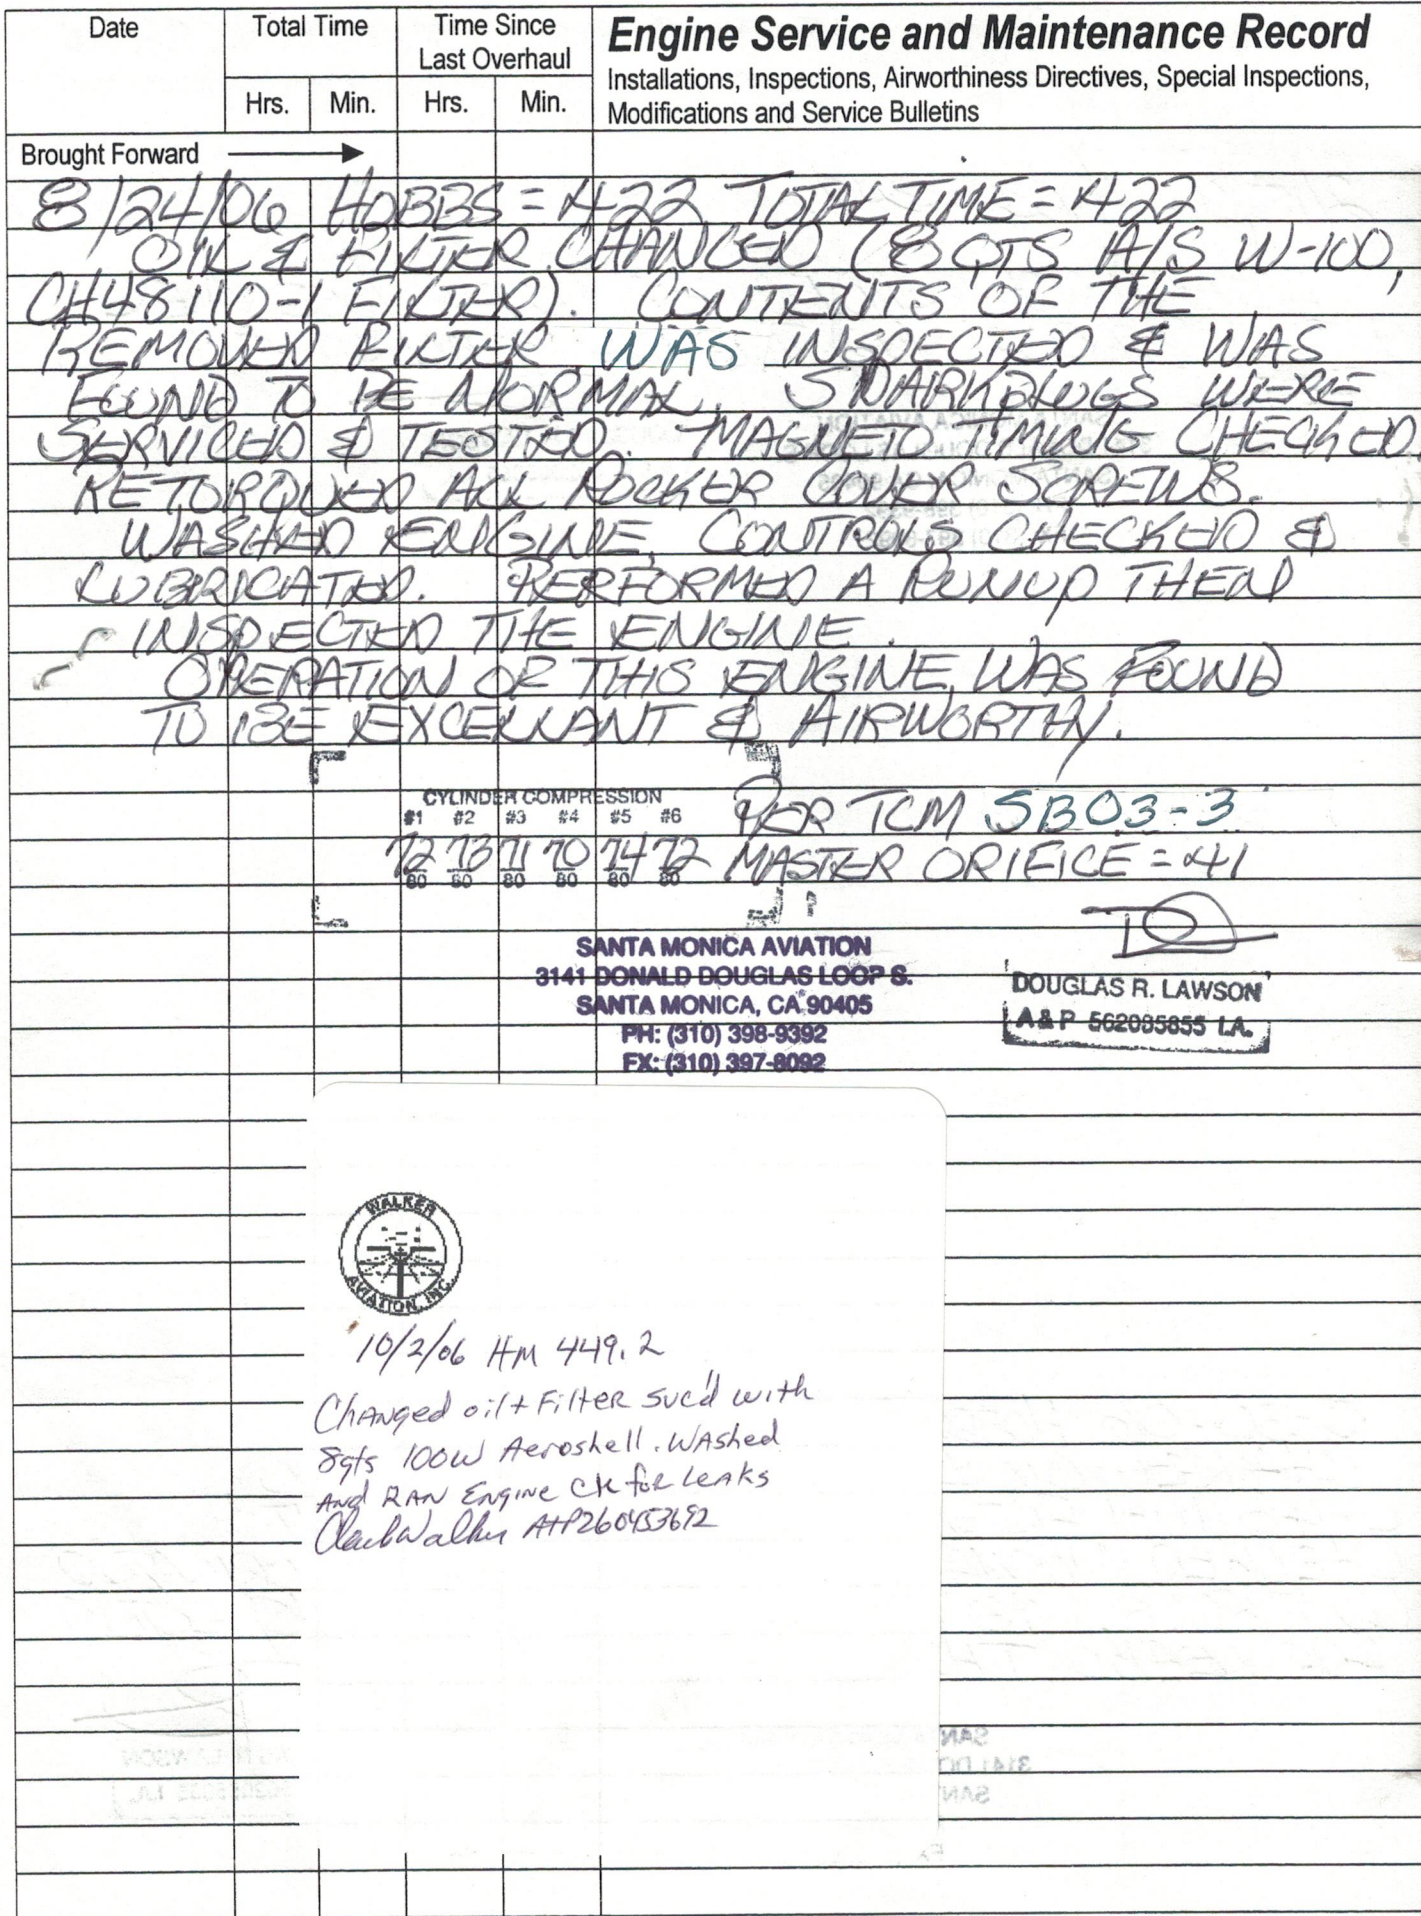 Date Total Time Time Since Last Overhaul Engine Service and Maintenance Record
Installations, Inspections, Airworthiness Directives, Special Inspections,
Hrs. Min. Hrs. Min. Modifications and Service Bulletins
Brought Forward
8/24/06 HOBBS = 422 TOTAL TIME = 422
OIL & FILTER CHANGED (8 QTS A/S W-100,
CH48110-1 FILTER). CONTENTS OF THE
REMOVED FILTER WAS INSPECTED & WAS
FOUND TO BE NORMAL. SPARKPLUGS WERE
SERVICED & TESTED. MAGNETO TIMING CHECKED.
RETORQUED ALL ROCKER COVER SCREWS.
WASHED ENGINE, CONTROLS CHECKED &
LUBRICATED. PERFORMED A RUNUP THEN
INSPECTED THE ENGINE.
OPERATION OF THIS ENGINE WAS FOUND
TO BE EXCELLANT & AIRWORTHY.
CYLINDER COMPRESSION PER TCM SB03-3
#1 #2 #3 #4 #5 #6
72 73 71 70 74 72 MASTER ORIFICE = 41
80 80 80 80 80 80
SANTA MONICA AVIATION
3141 DONALD DOUGLAS LOOP S.
SANTA MONICA, CA 90405
PH: (310) 398-9392
FX: (310) 397-8092
DOUGLAS R. LAWSON
A & P 562085855 I.A.
WALKER
AVIATION, INC.
10/2/06 HM 449.2
Changed oil + Filter svc'd with
8qts 100W Aeroshell. WAshed
And RAN Engine CK for LeAKs
Clark Walker A+P260453692